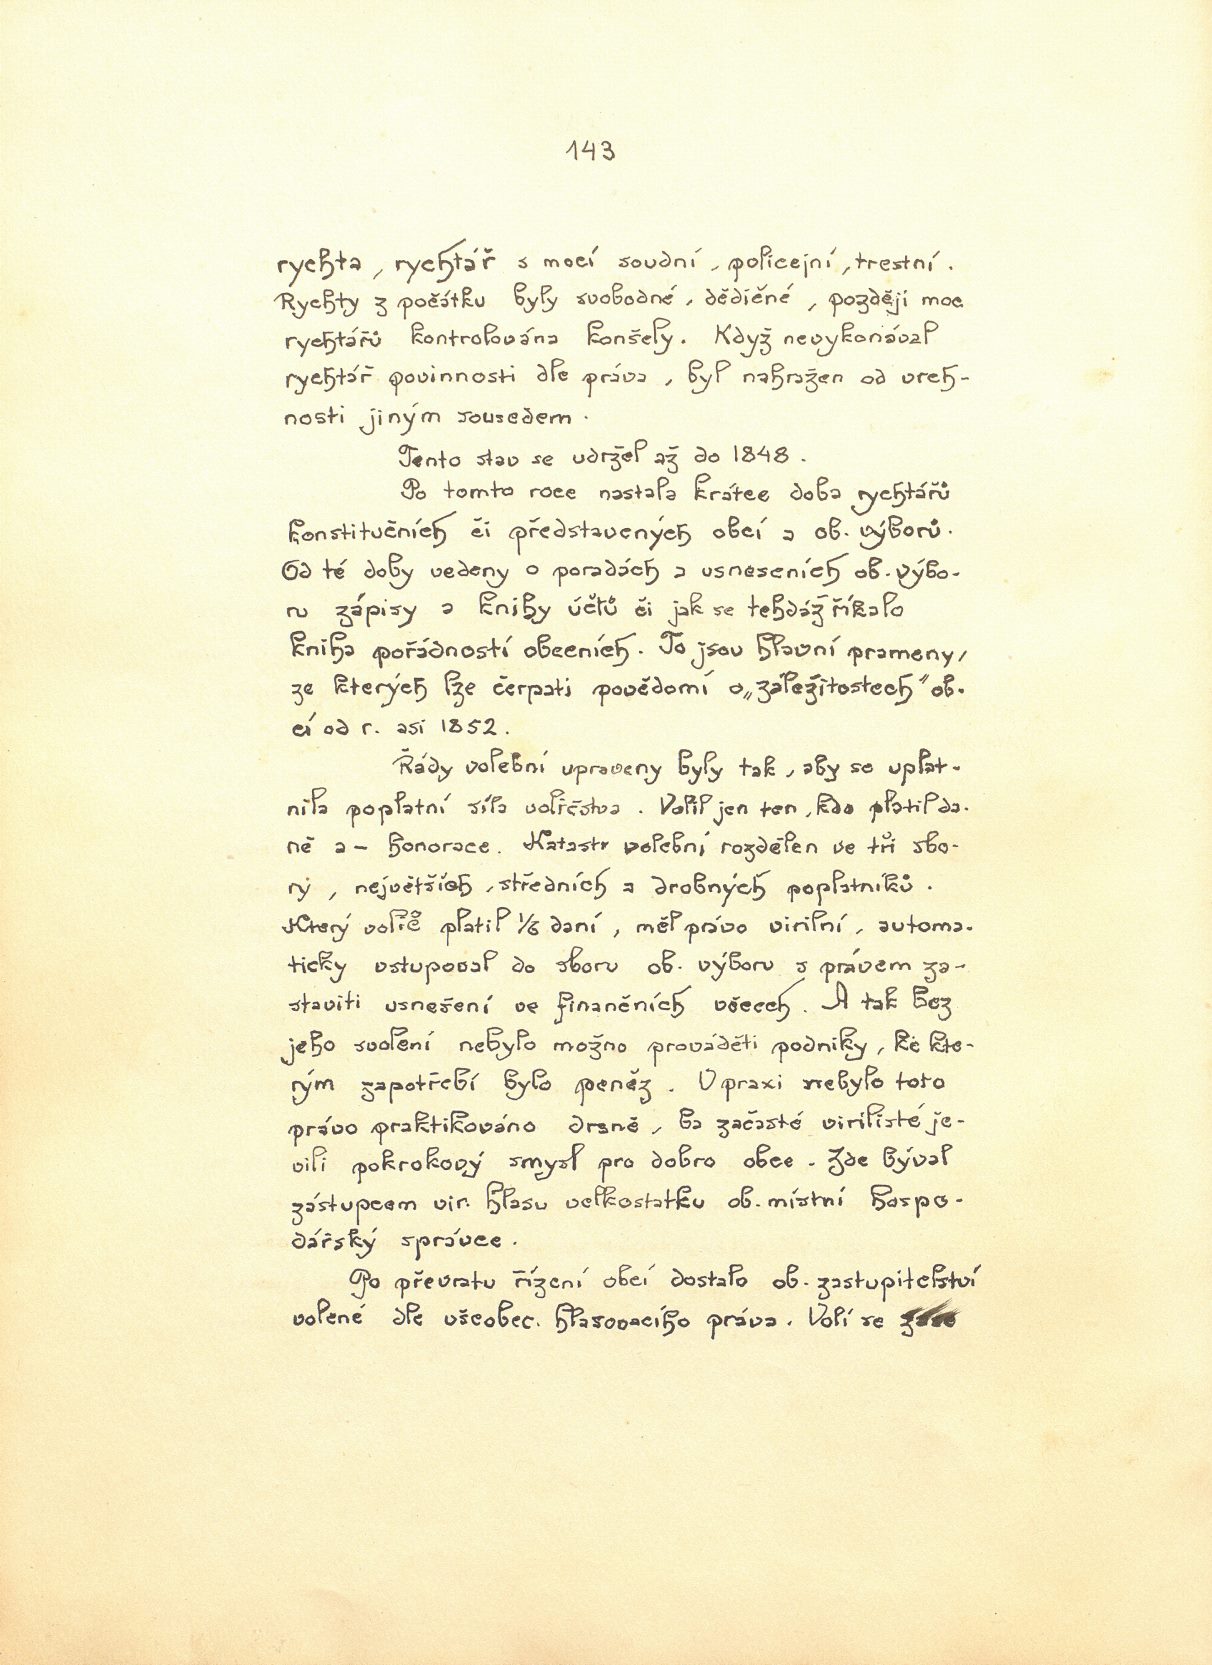 143
rychta, rychtář s mocí soudní, policejní, trestní.
Rychty z počátku byly svobodné, dědičné, později moc
rychtářů kontrolována konšely. Když nevykonával
rychtář povinnosti dle práva, byl nahražen od vrch-
nosti jiným sousedem.
Tento stav se udržel až do 1848.
Po tomto roce nastala krátce doba rychtářů
konstitučních či představených obcí a ob. výborů.
Od té doby vedeny o poradách a usneseních ob. výbo-
ru zápisy a knihy účtů či jak se tehdáž říkalo
kniha pořádností obecních. To jsou hlavní prameny,
ze kterých lze čerpati povědomí o „záležitostech“ ob-
cí od r. asi 1852.
Řády volební upraveny byly tak, aby se uplat-
nila poplatní síla voličstva. Volil jen ten, kdo platil da-
ně a - honorace. Katastr volební rozdělen ve tři sbo-
ry, největších, středních a drobných poplatníků.
Který volič platil 1/6 daní, měl právo virilní, automa-
ticky vstupoval do sboru ob. výboru s právem za-
staviti usnešení ve finančních věcech. A tak bez
jeho svolení nebylo možno prováděti podniky, ke kte-
rým zapotřebí bylo peněz. V praxi nebylo toto
právo praktikováno drsně, ba začasté virilisté je-
vili pokrokový smysl pro dobro obce. Zde býval
zástupcem vir. hlasu velkostatku ob. místní hospo-
dářský správce.
Po převratu řízení obcí dostalo ob. zastupitelství
volené dle všeobec. hlasovacího práva. Volí se